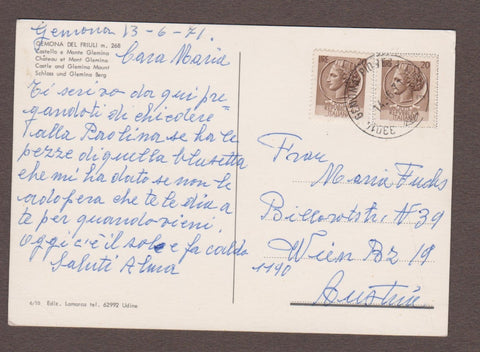 Gemona 13-6-71.
GEMONA DEL FRIULI m. 268
Castello e Monte Glemina
Château et Mont Glemina
Castle and Glemina Mount
Schloss und Glemina Berg
Cara Maria
Ti scrivo da qui pre
gandoti di chiedere
alla Paolina se ha le
pezze di quella blusetta
che mi ha dato se non le
adopera che te le dia a
te per quando vieni.
Oggi c'è il sole fa caldo
Saluti Alma
6/10 Ediz. Lomaros tel. 62992 Udine
20
33014 GEMONA
Frau
Maria Fuchs
Billrothstr. N 39
Wien Bz 19
1190
Austria